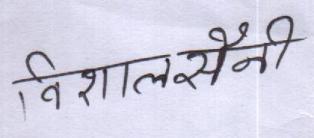 विशालसैनी